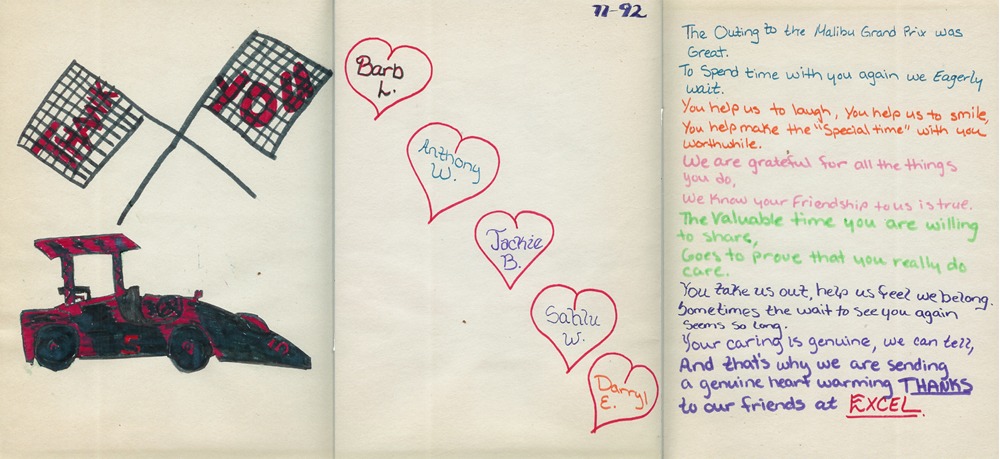 THANK
YOU
77-92
Barb
L.
Anthony
W.
Jackie
B.
Sahlu
W.
Darryl
E.
The Outing to the Malibu Grand Prix was
Great.
To Spend time with you again we Eagerly
wait.
You help us to laugh, You help us to smile,
You help make the "Special time" with you
worthwhile.
We are grateful for all the things
you do,
We know your Friendship to us is true.
The Valuable time you are willing
to share,
Goes to prove that you really do
care.
You take us out, help us feel we belong.
Sometimes the wait to see you again
seems so long.
Your caring is genuine, we can tell,
And that's why we are sending
a genuine heart warming THANKS
to our friends at EXCEL.